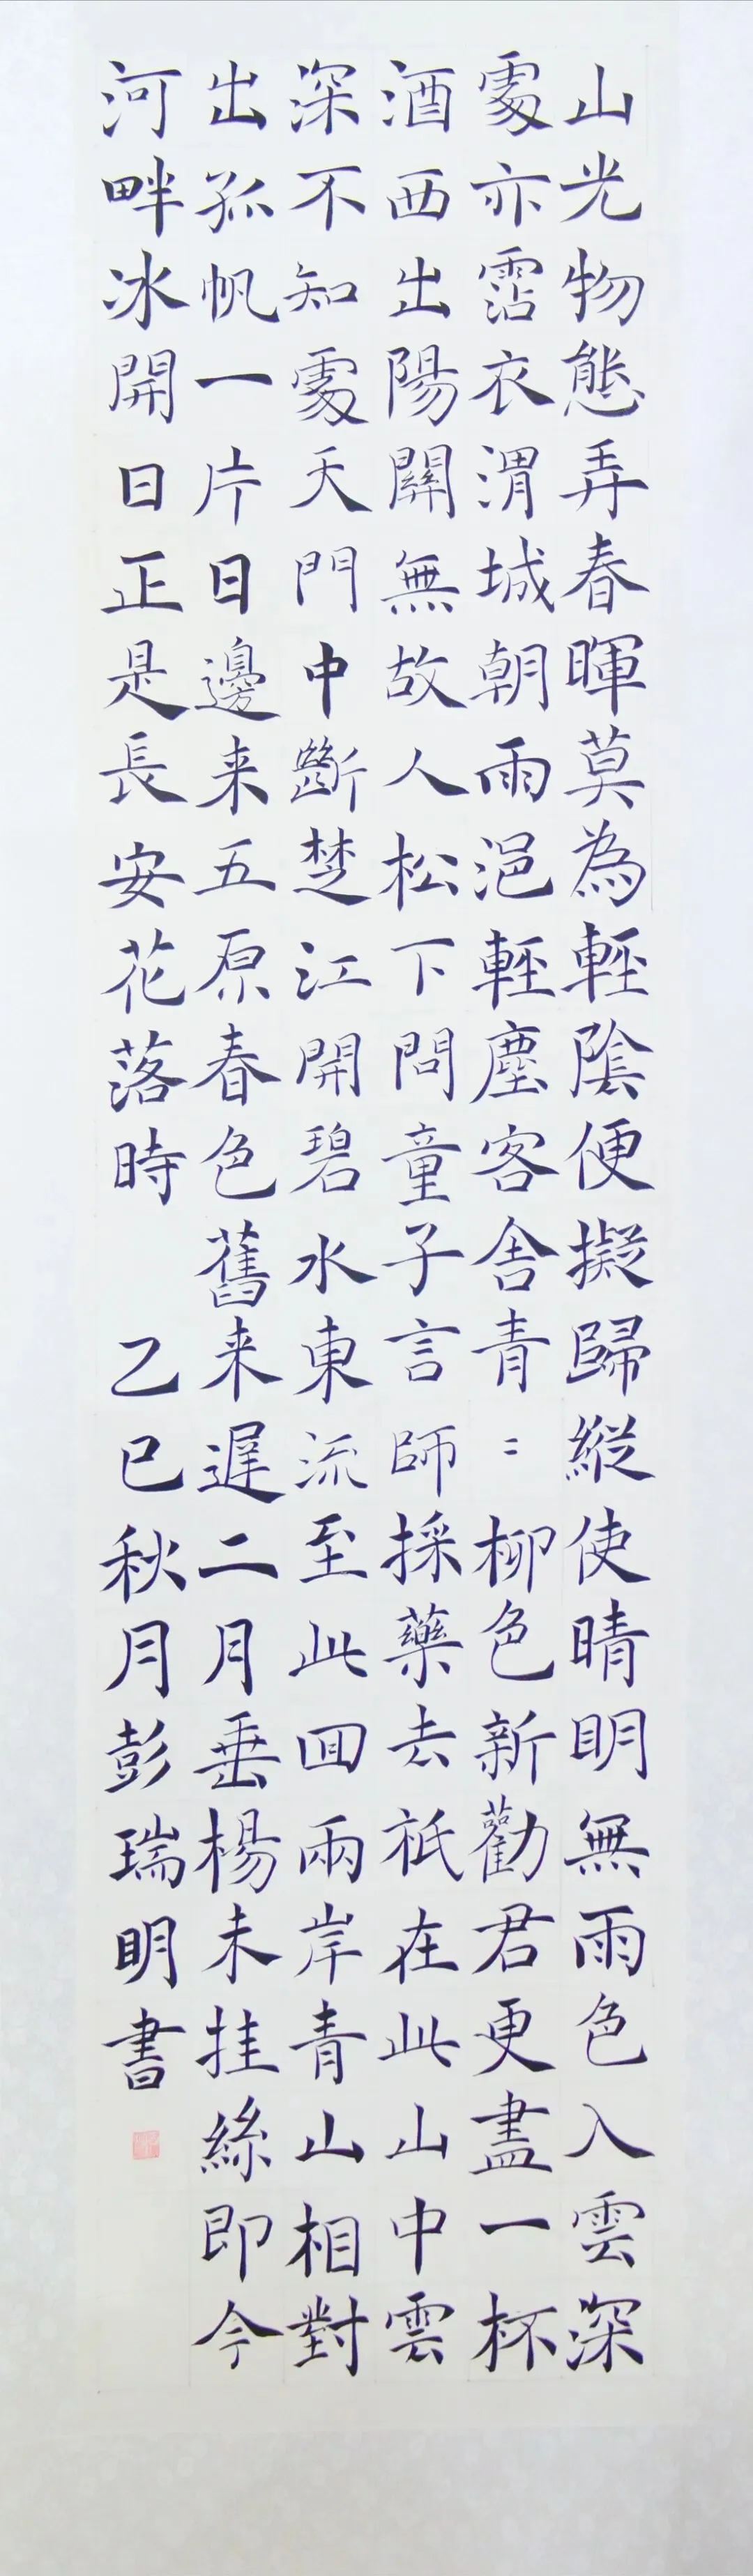 山光物態弄春暉莫為輕陰便擬歸縱使晴明無雨色入雲深
處亦霑衣渭城朝雨浥輕塵客舍青〻柳色新勸君更盡一杯
酒西出陽關無故人松下問童子言師採藥去祇在此山中雲
深不知處天門中斷楚江開碧水東流至此回兩岸青山相對
出孤帆一片日邊来五原春色舊来遲二月垂楊未挂絲即今
河畔冰開日正是長安花落時
乙巳秋月彭瑞明書